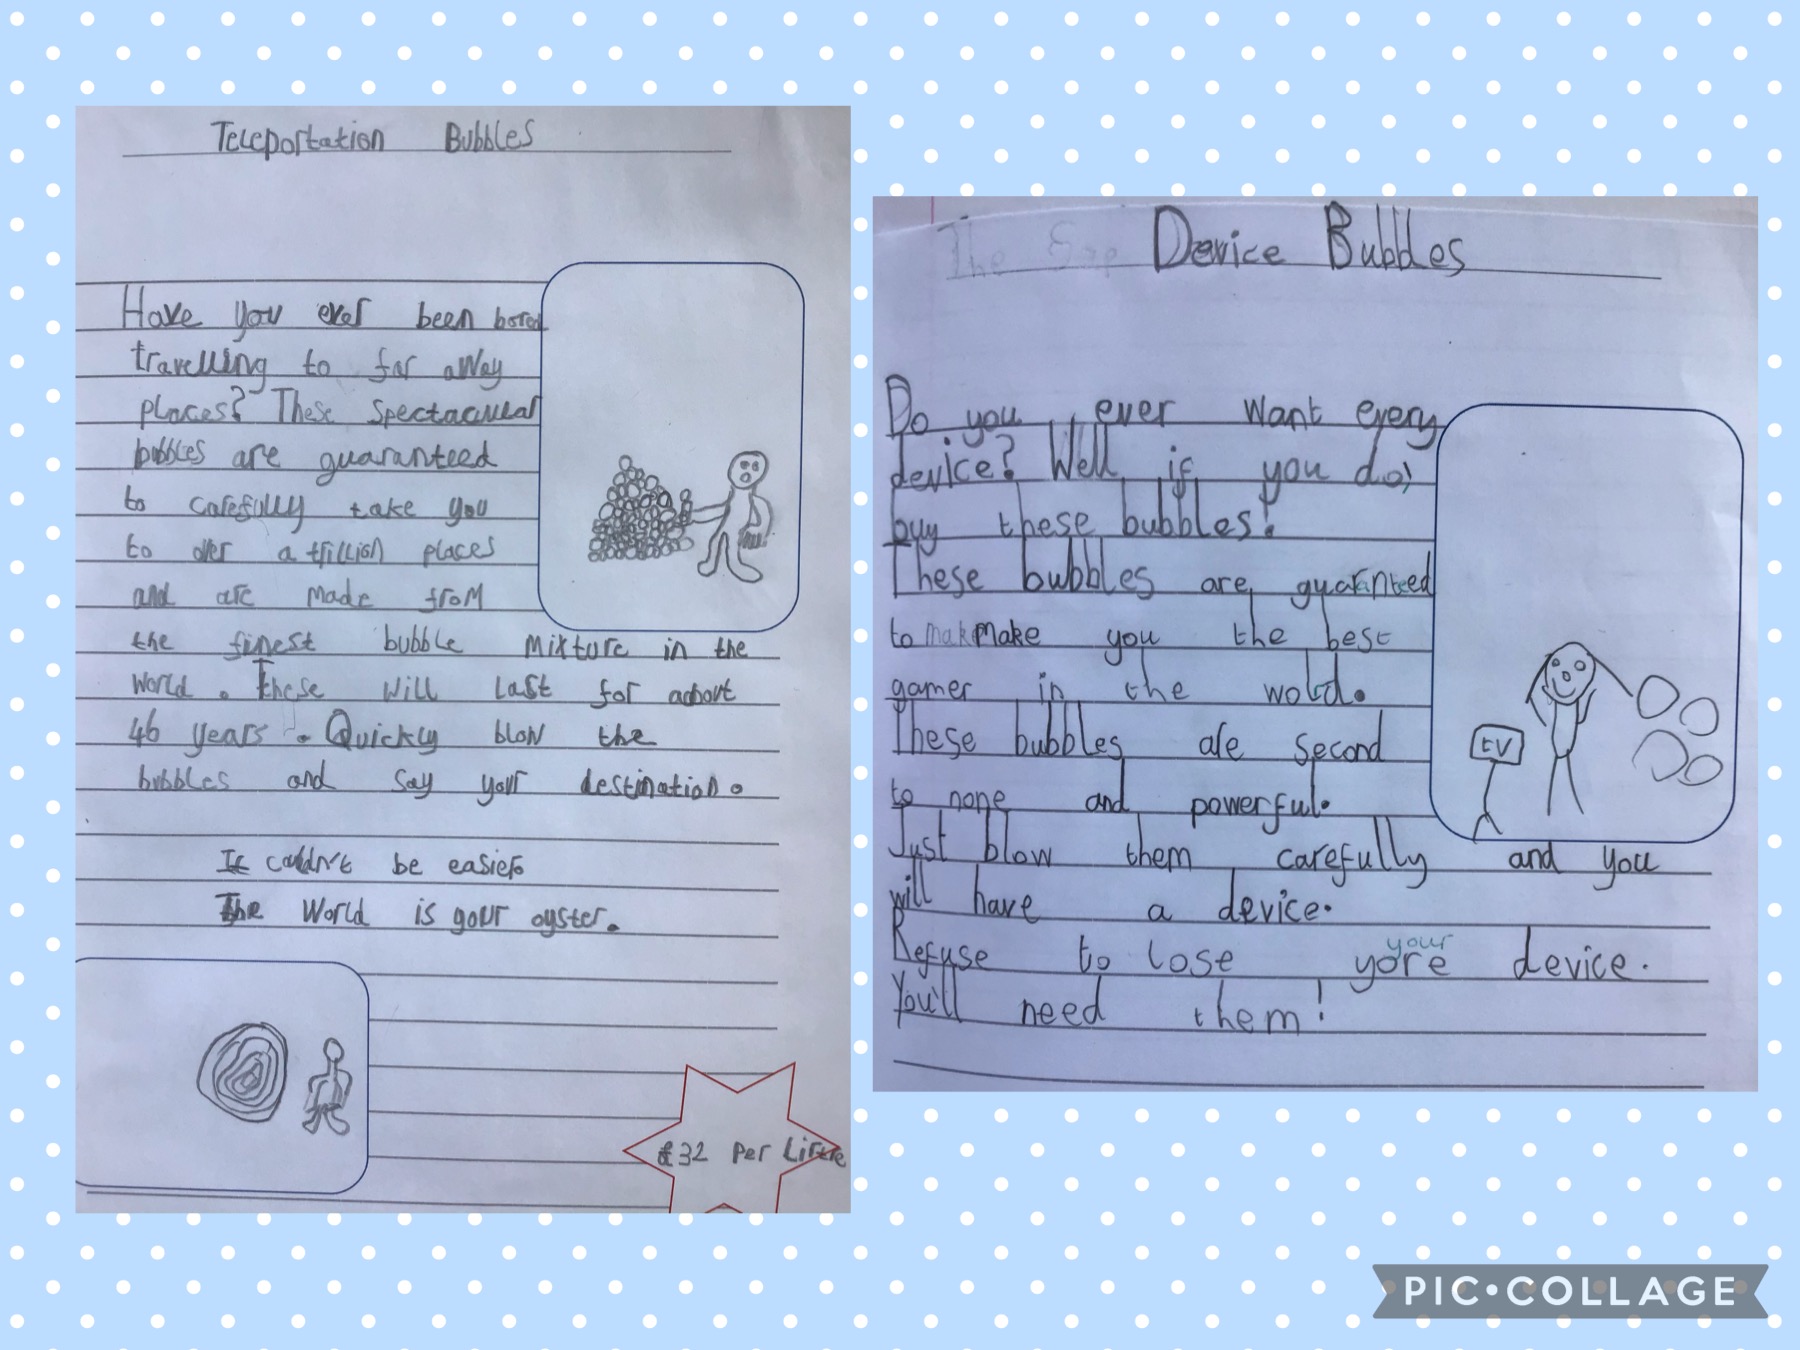 Teleportation Bubbles
Have you ever been bored
travelling to far away
places? These spectacular
bubbles are guaranteed
to carefully take you
to over a trillion places
and are made from
the finest bubble mixture in the
world. These will last for about
46 years. Quickly blow the
bubbles and say your destination.
It couldn't be easier.
The World is your oyster.
£32 per Litre
The Device Bubbles
Do you ever want every
device? Well if you do,
buy these bubbles!
These bubbles are guaranteed
to make make you the best
gamer in the wolrd.
These bubbles are second
to none and powerful.
Just blow them carefully and you
will have a device.
your
Refuse to lose yore device.
You'll need them!
tv
PIC•COLLAGE